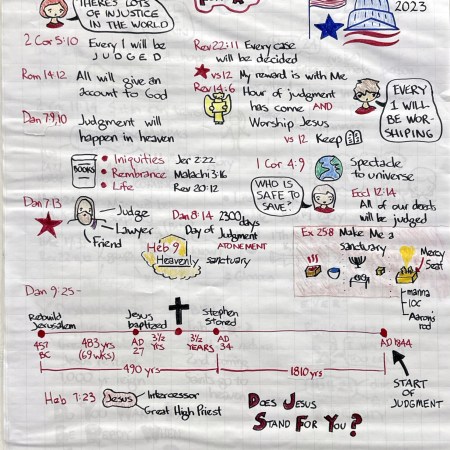 THERE'S LOTS
OF INJUSTICE
IN THE WORLD
2023
2 Cor 5:10 Every 1 will be
JUDGED
Rom 14:12 All will give an
account to God
Dan 7:9,10 Judgment will
happen in heaven
Rev 22:11 Every case
will be decided
vs 12 My reward is with Me
Rev 14:6 Hour of judgment
has come AND
Worship Jesus
vs 12 Keep
EVERY
1 WILL
BE WOR-
SHIPING
BOOKS
Iniquities Jer 2:22
Rembrance Malachi 3:16
Life Rev 20:12
1 Cor 4:9 Spectacle
to universe
WHO IS
SAFE TO
SAVE?
Eccl 12:14
All of our deeds
will be judged
Dan 7:13
Judge
Lawyer
Friend
Dan 8:14 2300 days
Day of Judgment
ATONEMENT
Heb 9
Heavenly sanctuary
Ex 25:8 Make Me a
sanctuary
Mercy
Seat
manna
10C
Aaron's
rod
Dan 9:25-
Rebuild
Jerusalem
Jesus
baptized
Stephen
Stoned
457
BC
483 yrs
(69 wks)
AD
27
3½
YRS
3½
YEARS
AD
34
AD 1844
490 yrs
1810 yrs
START
OF
JUDGMENT
Heb 7:23 Jesus Intercessor
Great High Priest
DOES JESUS
STAND FOR YOU?